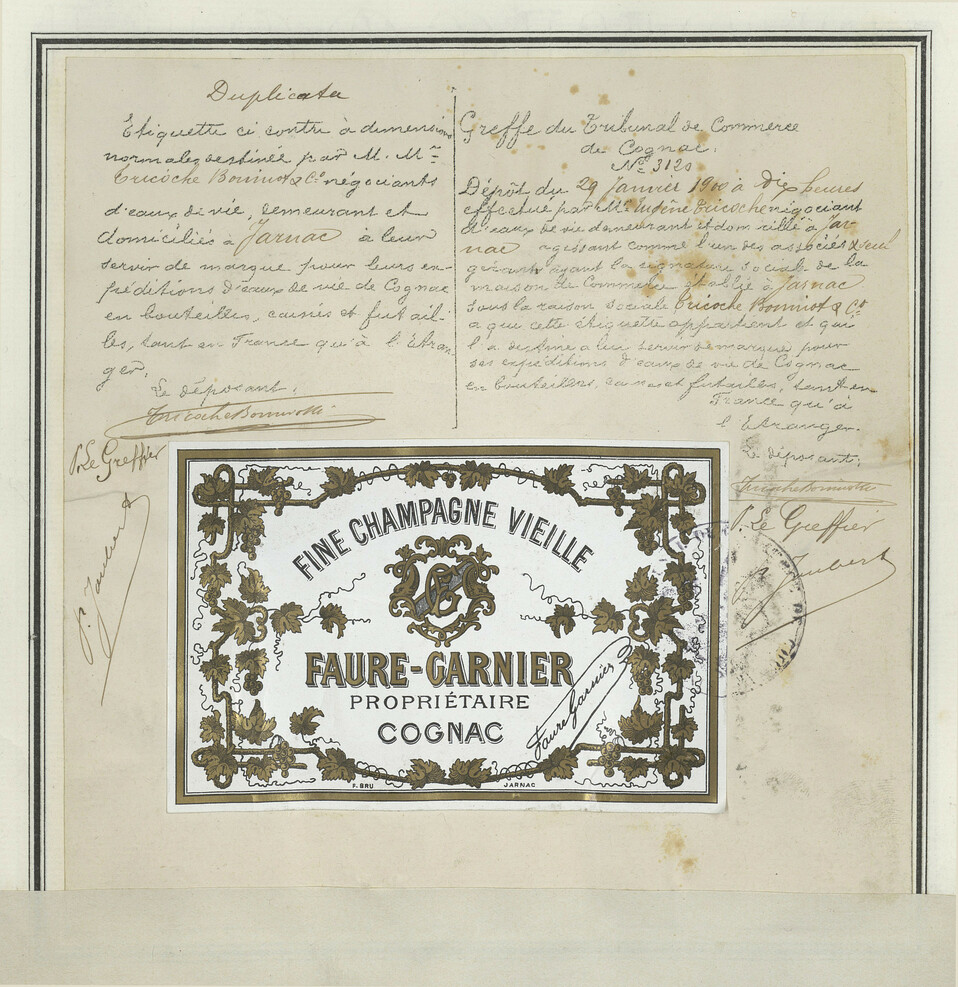 Duplicata
Etiquette ci contre à dimensions
normales destinée par M. Mrs
Tricoche Bonniot & Co négociants
d'eaux de vie, demeurant et
domiciliés à Jarnac à leur
servir de marque pour leurs ex-
péditions d'eaux de vie de Cognac
en bouteilles, caisses et futail-
les, tant en France qu'à l'Etran-
ger.
Le déposant,
Tricoche Bonniot & Co
P. Le Greffier
P. Joubert
Greffe du Tribunal de Commerce
de Cognac.
No 3120
Dépôt du 29 Janvier 1900 à dix heures
effectué par Mr Eugène Tricoche négociant
d'eaux de vie demeurant et domicilié à Jar
nac agissant comme l'un des associés & seul
gérant ayant la signature sociale de la
maison de Commerce établie à Jarnac
sous la raison sociale Tricoche Bonniot & Co
à qui cette étiquette appartient et qui
l'a destiné à lui servir de marque pour
ses expéditions d'eaux de vie de Cognac
en bouteilles, caisses et futailles, tant en
France qu'à
l'Etranger.
Le déposant,
Tricoche Bonniot & Co
P. Le Greffier
P. Joubert
FINE CHAMPAGNE VIEILLE
FAURE-GARNIER
PROPRIÉTAIRE
COGNAC
Faure Garnier
F. BRU JARNAC